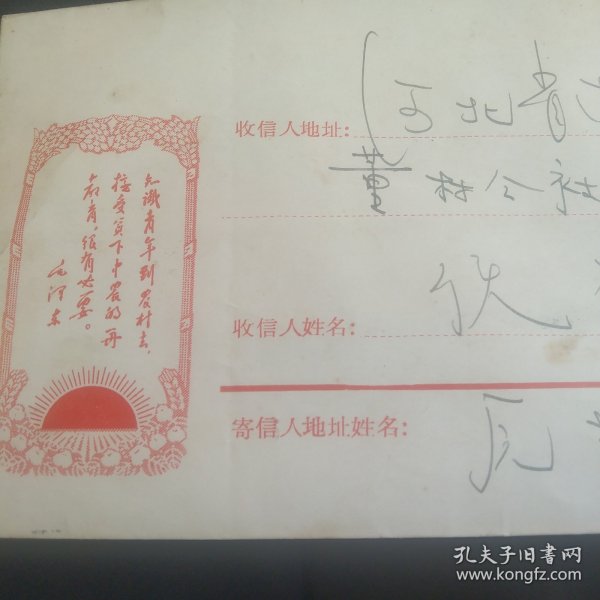 知识青年到农村去，
接受贫下中农的再
教育，很有必要。
毛泽东
收信人地址：
河北青
董村公社
收信人姓名：
寄信人地址姓名：
孔夫子旧书网
www.kongfz.com